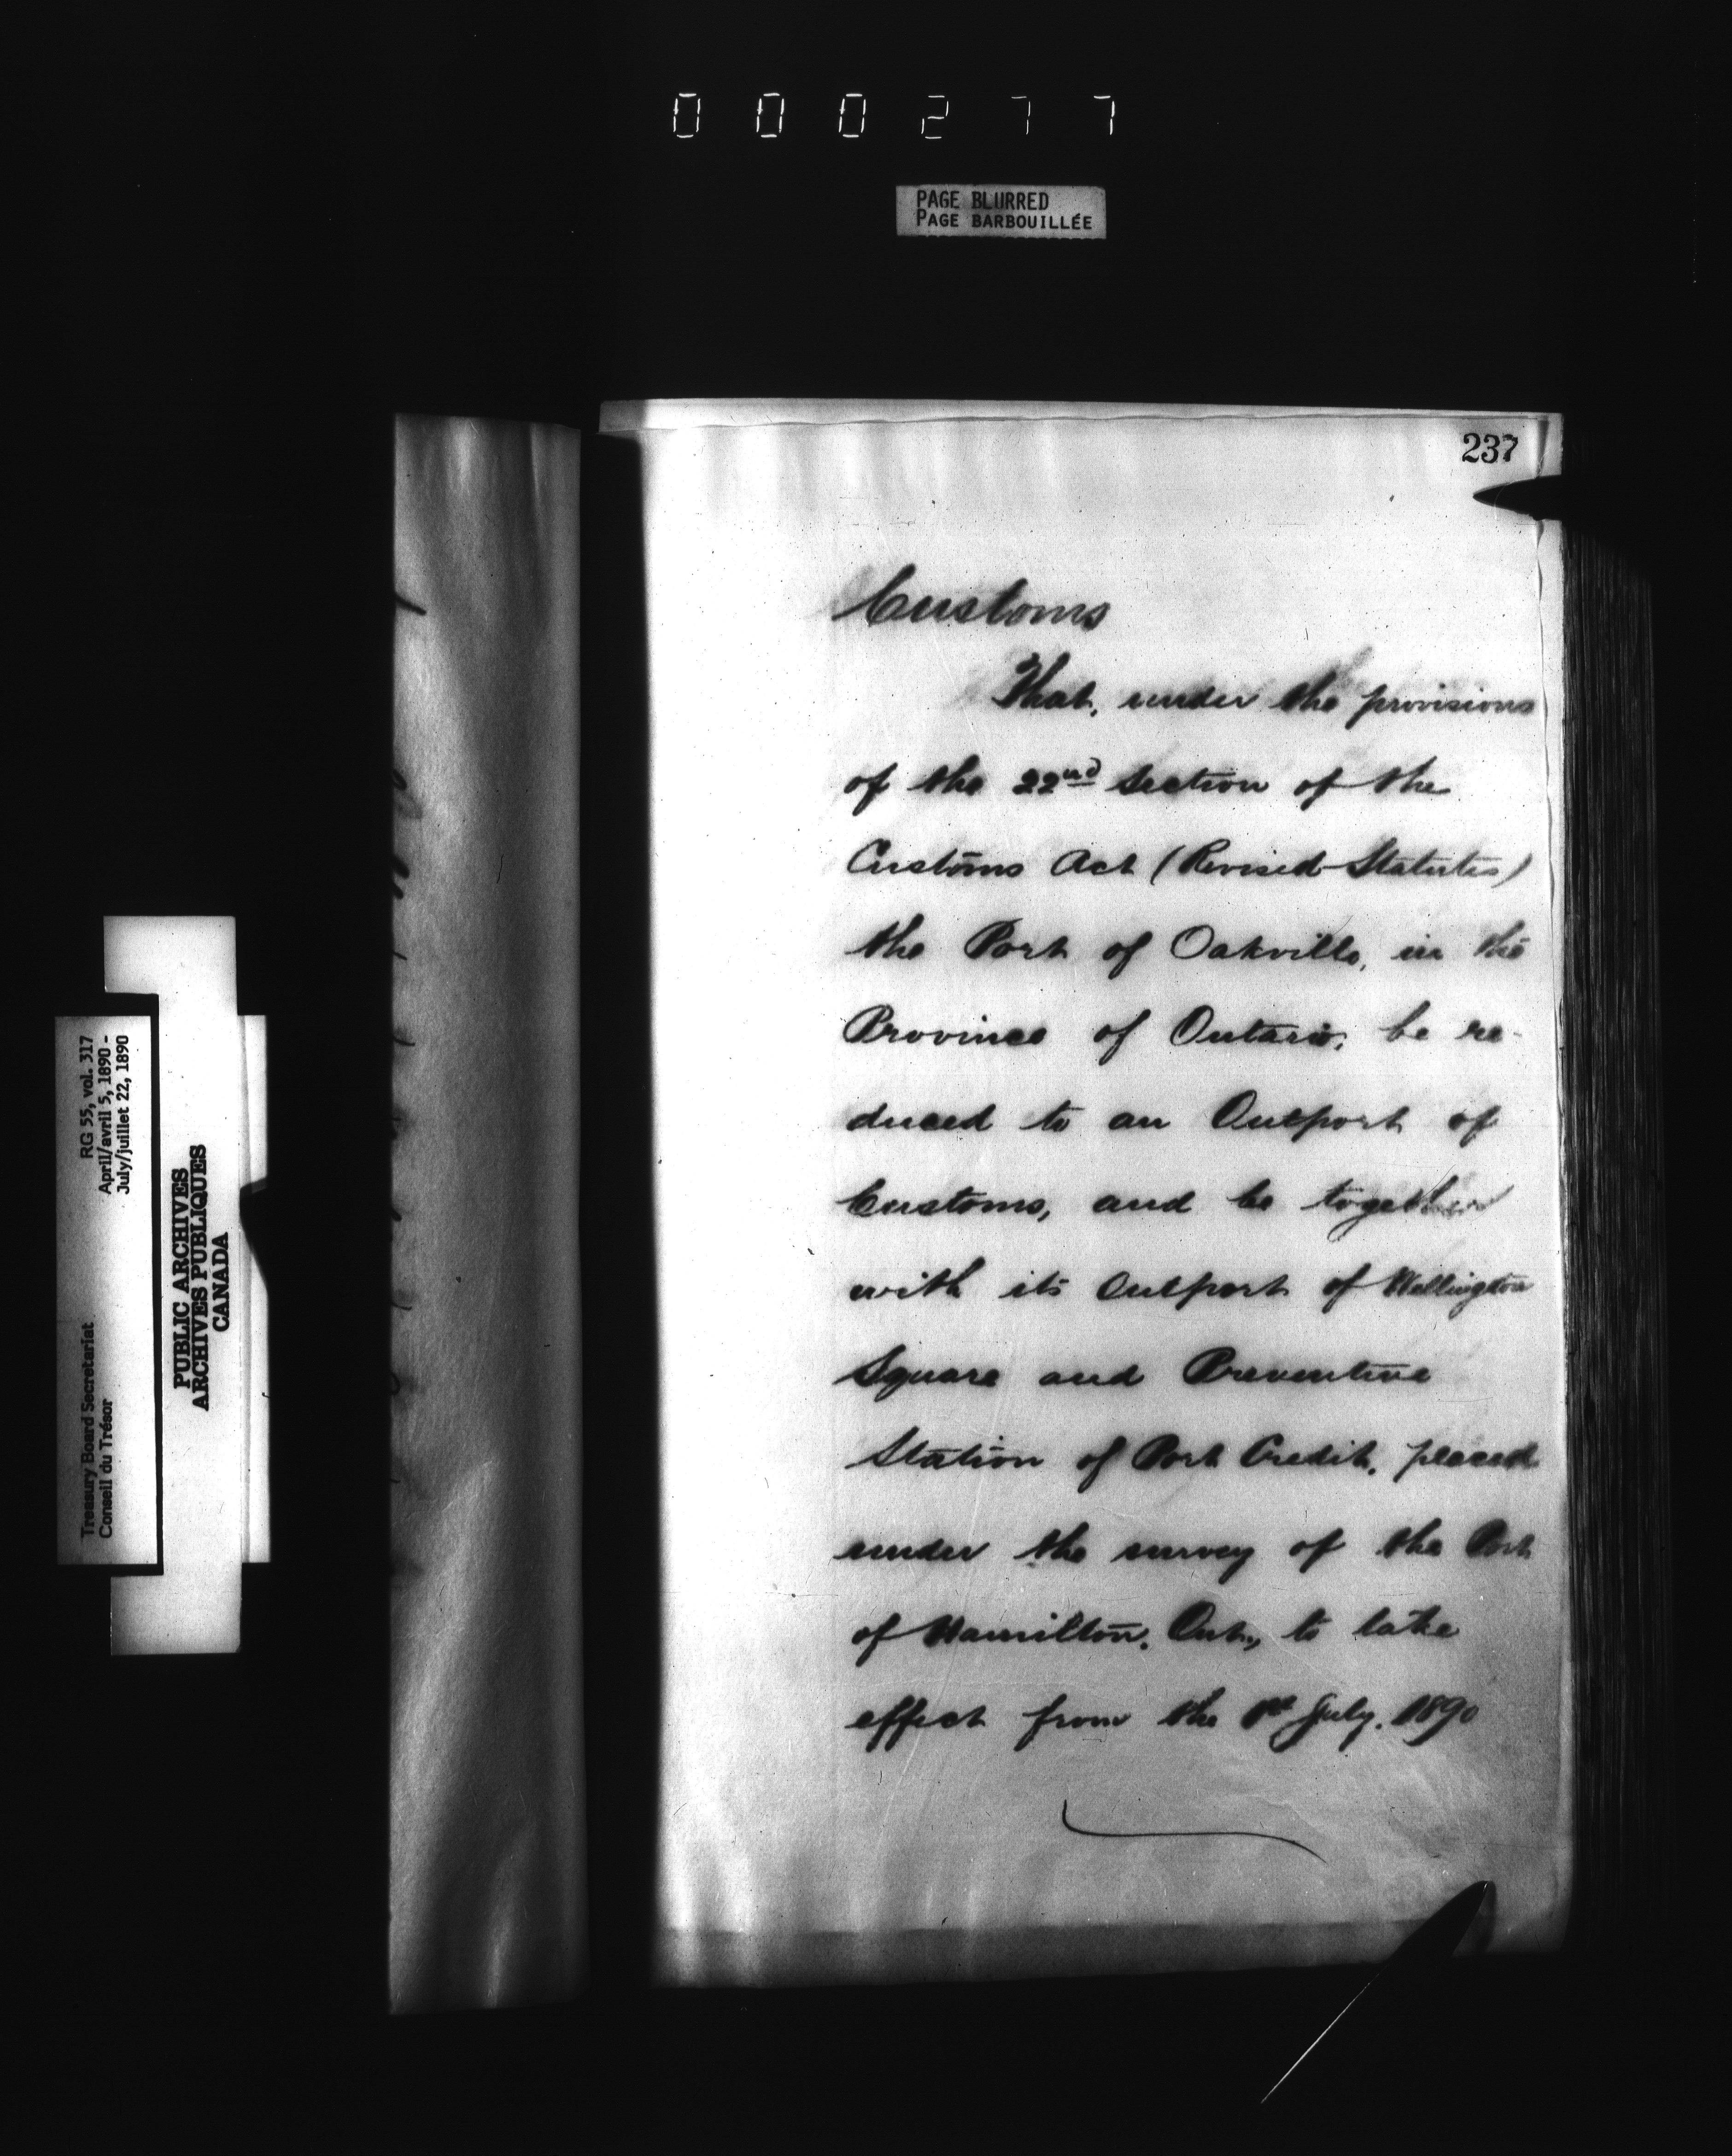 000277
PAGE BLURRED
PAGE BARBOUILLÉE
237
Customs
That, under the provisions
of the 22nd Section of the
Customs Act (Revised Statutes)
the Port of Oakville, in the
Province of Ontario, be re-
duced to an Outport of
Customs, and be together
with its Outport of Wellington
Square and Preventive
Station of Port Credit, placed
under the survey of the Port
of Hamilton, Ont., to take
effect from the 1st July, 1890
RG 55, vol. 317
April/avril 5, 1890 -
July/juillet 22, 1890
Treasury Board Secretariat
Conseil du Trésor
PUBLIC ARCHIVES
ARCHIVES PUBLIQUES
CANADA